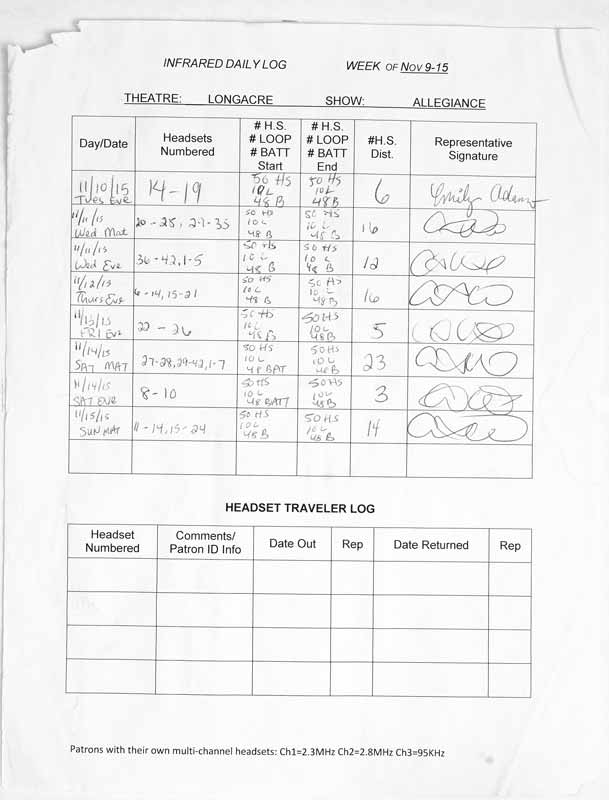 INFRARED DAILY LOG WEEK OF NOV 9-15
THEATRE: LONGACRE SHOW: ALLEGIANCE
Day/Date
Headsets Numbered
# H.S.
# LOOP
# BATT
Start
# H.S.
# LOOP
# BATT
End
#H.S.
Dist.
Representative
Signature
11/10/15
Tues Eve
14-19
50 HS
10 L
48 B
50 HS
10 L
48 B
6
Emily Adams
11/11/15
Wed Mat
20-28, 29-35
50 HS
10 L
48 B
50 HS
10 L
48 B
16
11/11/15
Wed Eve
36-42, 1-5
50 HS
10 L
48 B
50 HS
10 L
48 B
12
11/12/15
Thurs Eve
6-14, 15-21
50 HS
10 L
48 B
50 HS
10 L
48 B
16
11/13/15
FRI Eve
22-26
50 HS
10 L
48 B
50 HS
10 L
48 B
5
11/14/15
SAT MAT
27-28, 29-42, 1-7
50 HS
10 L
48 BAT
50 HS
10 L
48 B
23
11/14/15
SAT EVE
8-10
50 HS
10 L
48 BATT
50 HS
10 L
48 B
3
11/15/15
SUN MAT
11-14, 15-24
50 HS
10 L
48 B
50 HS
10 L
48 B
14
HEADSET TRAVELER LOG
Headset
Numbered
Comments/
Patron ID Info
Date Out
Rep
Date Returned
Rep
Patrons with their own multi-channel headsets: Ch1=2.3MHz Ch2=2.8MHz Ch3=95KHz